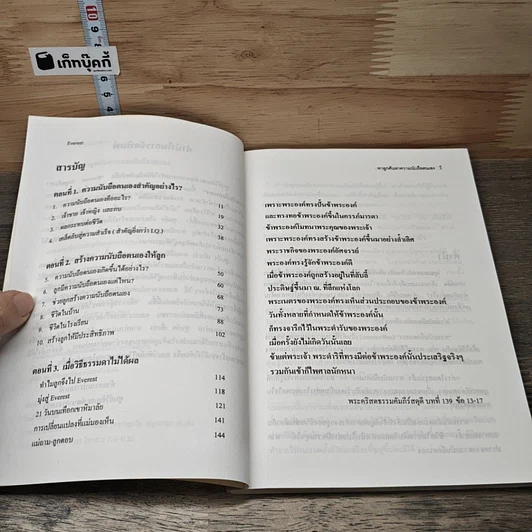 เก็ทบุ๊คกี้
10
9
6
5
4
Everest
สารบัญ
ตอนที่ 1. ความนับถือตนเองสำคัญอย่างไร?
1. ความนับถือตนเองคืออะไร? 11
2. เจ้าชาย เจ้าหญิง และกบ 19
3. ผลกระทบต่อชีวิต 33
4. เคล็ดลับสู่ความสำเร็จ ( สำคัญยิ่งกว่า I.Q.) 38
ตอนที่ 2. สร้างความนับถือตนเองให้ลูก
5. ความนับถือตนเองเกิดขึ้นได้อย่างไร? 50
6. ลูกมีความนับถือตนเองแค่ไหน? 60
7. ช่วยลูกสร้างความนับถือตนเอง 68
8. ชีวิตในบ้าน 73
9. ชีวิตในโรงเรียน 88
10. สร้างลูกให้มีประสิทธิภาพ 102
ตอนที่ 3. เมื่อวิธีธรรมดาไม่ได้ผล
ทำไมลูกจึงไป Everest 114
มุ่งสู่ Everest 118
21 วันบนเทือกเขาหิมาลัย 121
การเปลี่ยนแปลงที่แม่มองเห็น 141
แม่ถาม-ลูกตอบ 144
พาลูกค้นหาความนับถือตนเอง 7
เพราะพระองค์ทรงปั้นข้าพระองค์
และทรงทอข้าพระองค์ขึ้นในครรภ์มารดา
ข้าพระองค์โมทนาพระคุณของพระเจ้า
เพราะพระองค์ทรงสร้างข้าพระองค์ขึ้นมาอย่างล้ำเลิศ
พระราชกิจของพระองค์อัศจรรย์
พระองค์ทรงรู้จักข้าพระองค์ดี
เมื่อข้าพระองค์ถูกสร้างอยู่ในที่ลับลี้
ประดิษฐ์ขึ้นมา ณ ที่ลึกแห่งโลก
พระเนตรของพระองค์ทรงเห็นส่วนประกอบของข้าพระองค์
วันทั้งหลายที่กำหนดให้ข้าพระองค์นั้น
ก็ทรงจารึกไว้ในพระตำรับของพระองค์
เมื่อครั้งยังไม่เกิดวันนั้นเลย
ข้าแต่พระเจ้า พระดำริที่ทรงมีต่อข้าพระองค์นั้นประเสริฐจริงๆ
รวมกันเข้าก็ไพศาลนักหนา
พระคริสตธรรมคัมภีร์สดุดี บทที่ 139 ข้อ 13-17